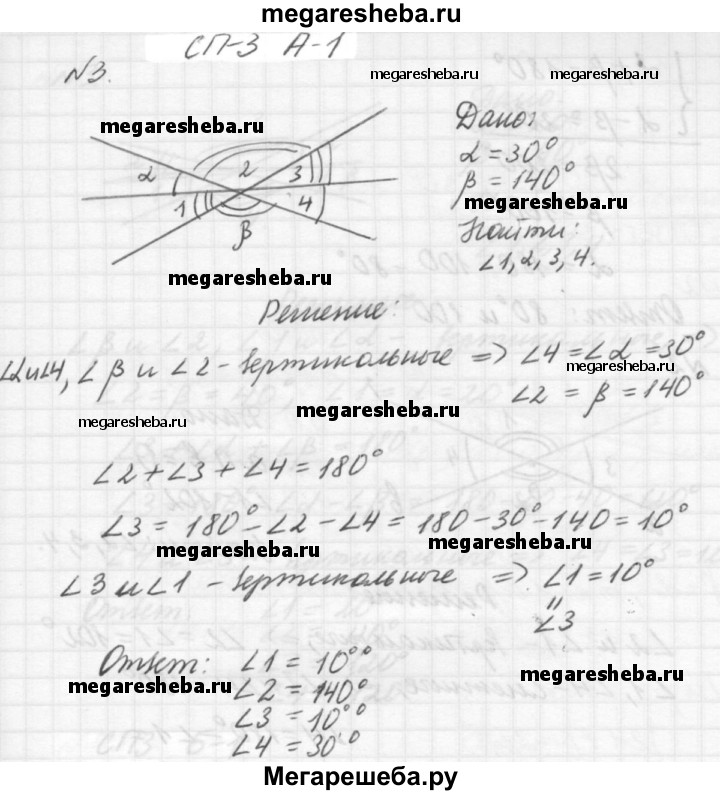 megaresheba.ru
СП-3 А-1
N3.
megaresheba.ru
megaresheba.ru
Дано:
α = 30°
β = 140°
megaresheba.ru
Найти:
∠1, 2, 3, 4.
α 2 3
1 4
β
megaresheba.ru
Решение:
∠α и ∠4, ∠β и ∠2 - вертикальные => ∠4 = ∠α = 30°
megaresheba.ru
∠2 = β = 140°
megaresheba.ru
∠2 + ∠3 + ∠4 = 180°
∠3 = 180° - ∠2 - ∠4 = 180 - 30° - 140 = 10°
megaresheba.ru
megaresheba.ru
∠3 и ∠1 - вертикальные => ∠1 = 10°
"
∠3
Ответ: ∠1 = 10°°
megaresheba.ru
megaresheba.ru
∠2 = 140°
∠3 = 10°°
∠4 = 30°°
Мегарешеба.ру